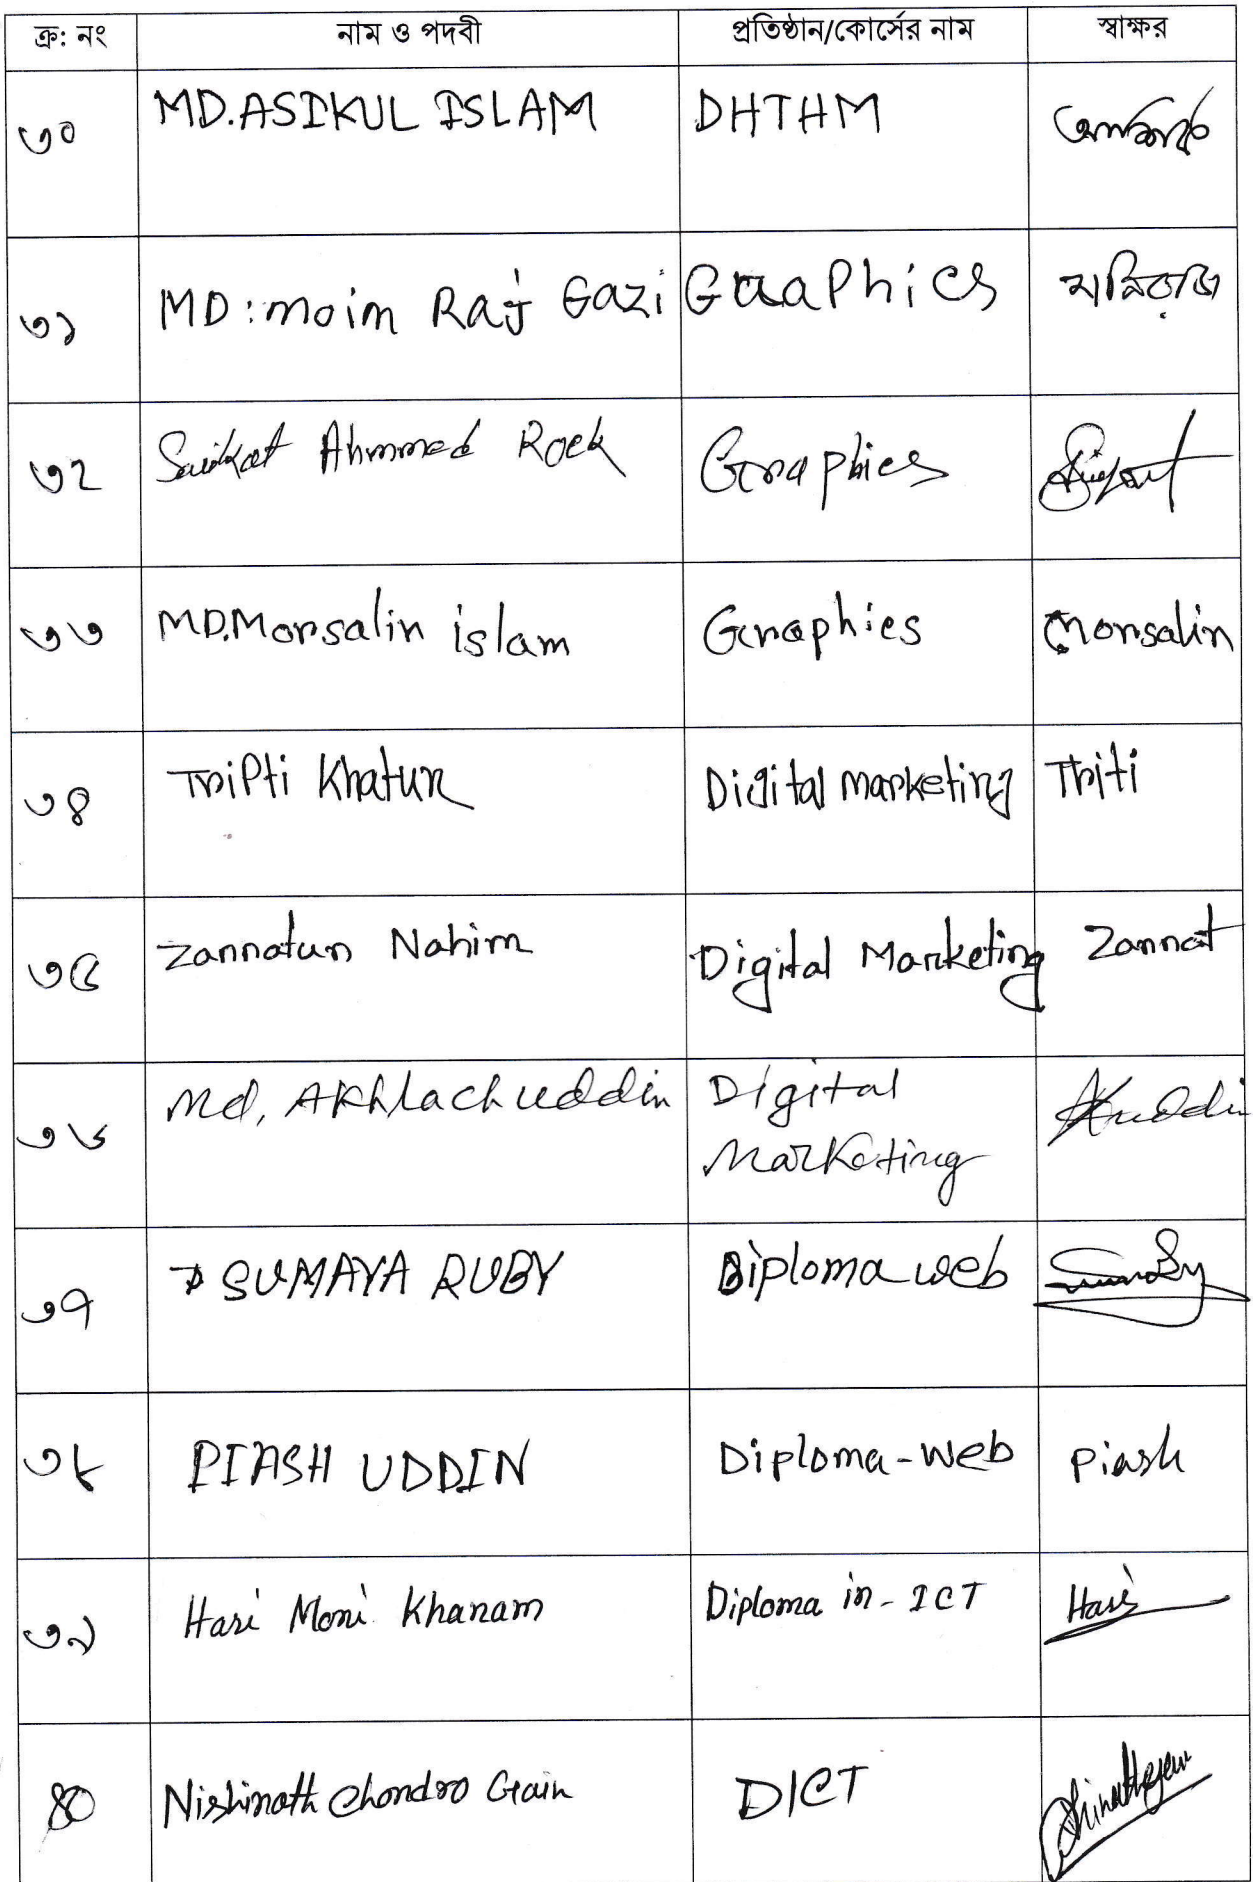 ক্র: নং নাম ও পদবী প্রতিষ্ঠান/কোর্সের নাম স্বাক্ষর
৩০ MD.ASIKUL ISLAM DHTHM
৩১ MD:moim Raj Gazi Graphics
৩২ Saikat Ahmmed Rock Graphics
৩৩ MD.Morsalin islam Graphies Morsalin
৩৪ Tripti Khatun Digital marketing Triti
৩৫ Zannatun Nahim Digital Marketing Zannat
৩৬ Md, Akhlach uddin Digital
Marketing
৩৭ SUMAYA RUBY Diploma web
৩৮ PIASH UDDIN Diploma-web Piash
৩৯ Hasi Moni Khanam Diploma in-ICT Hasi
৪০ Nishinath Chondro Gain DICT